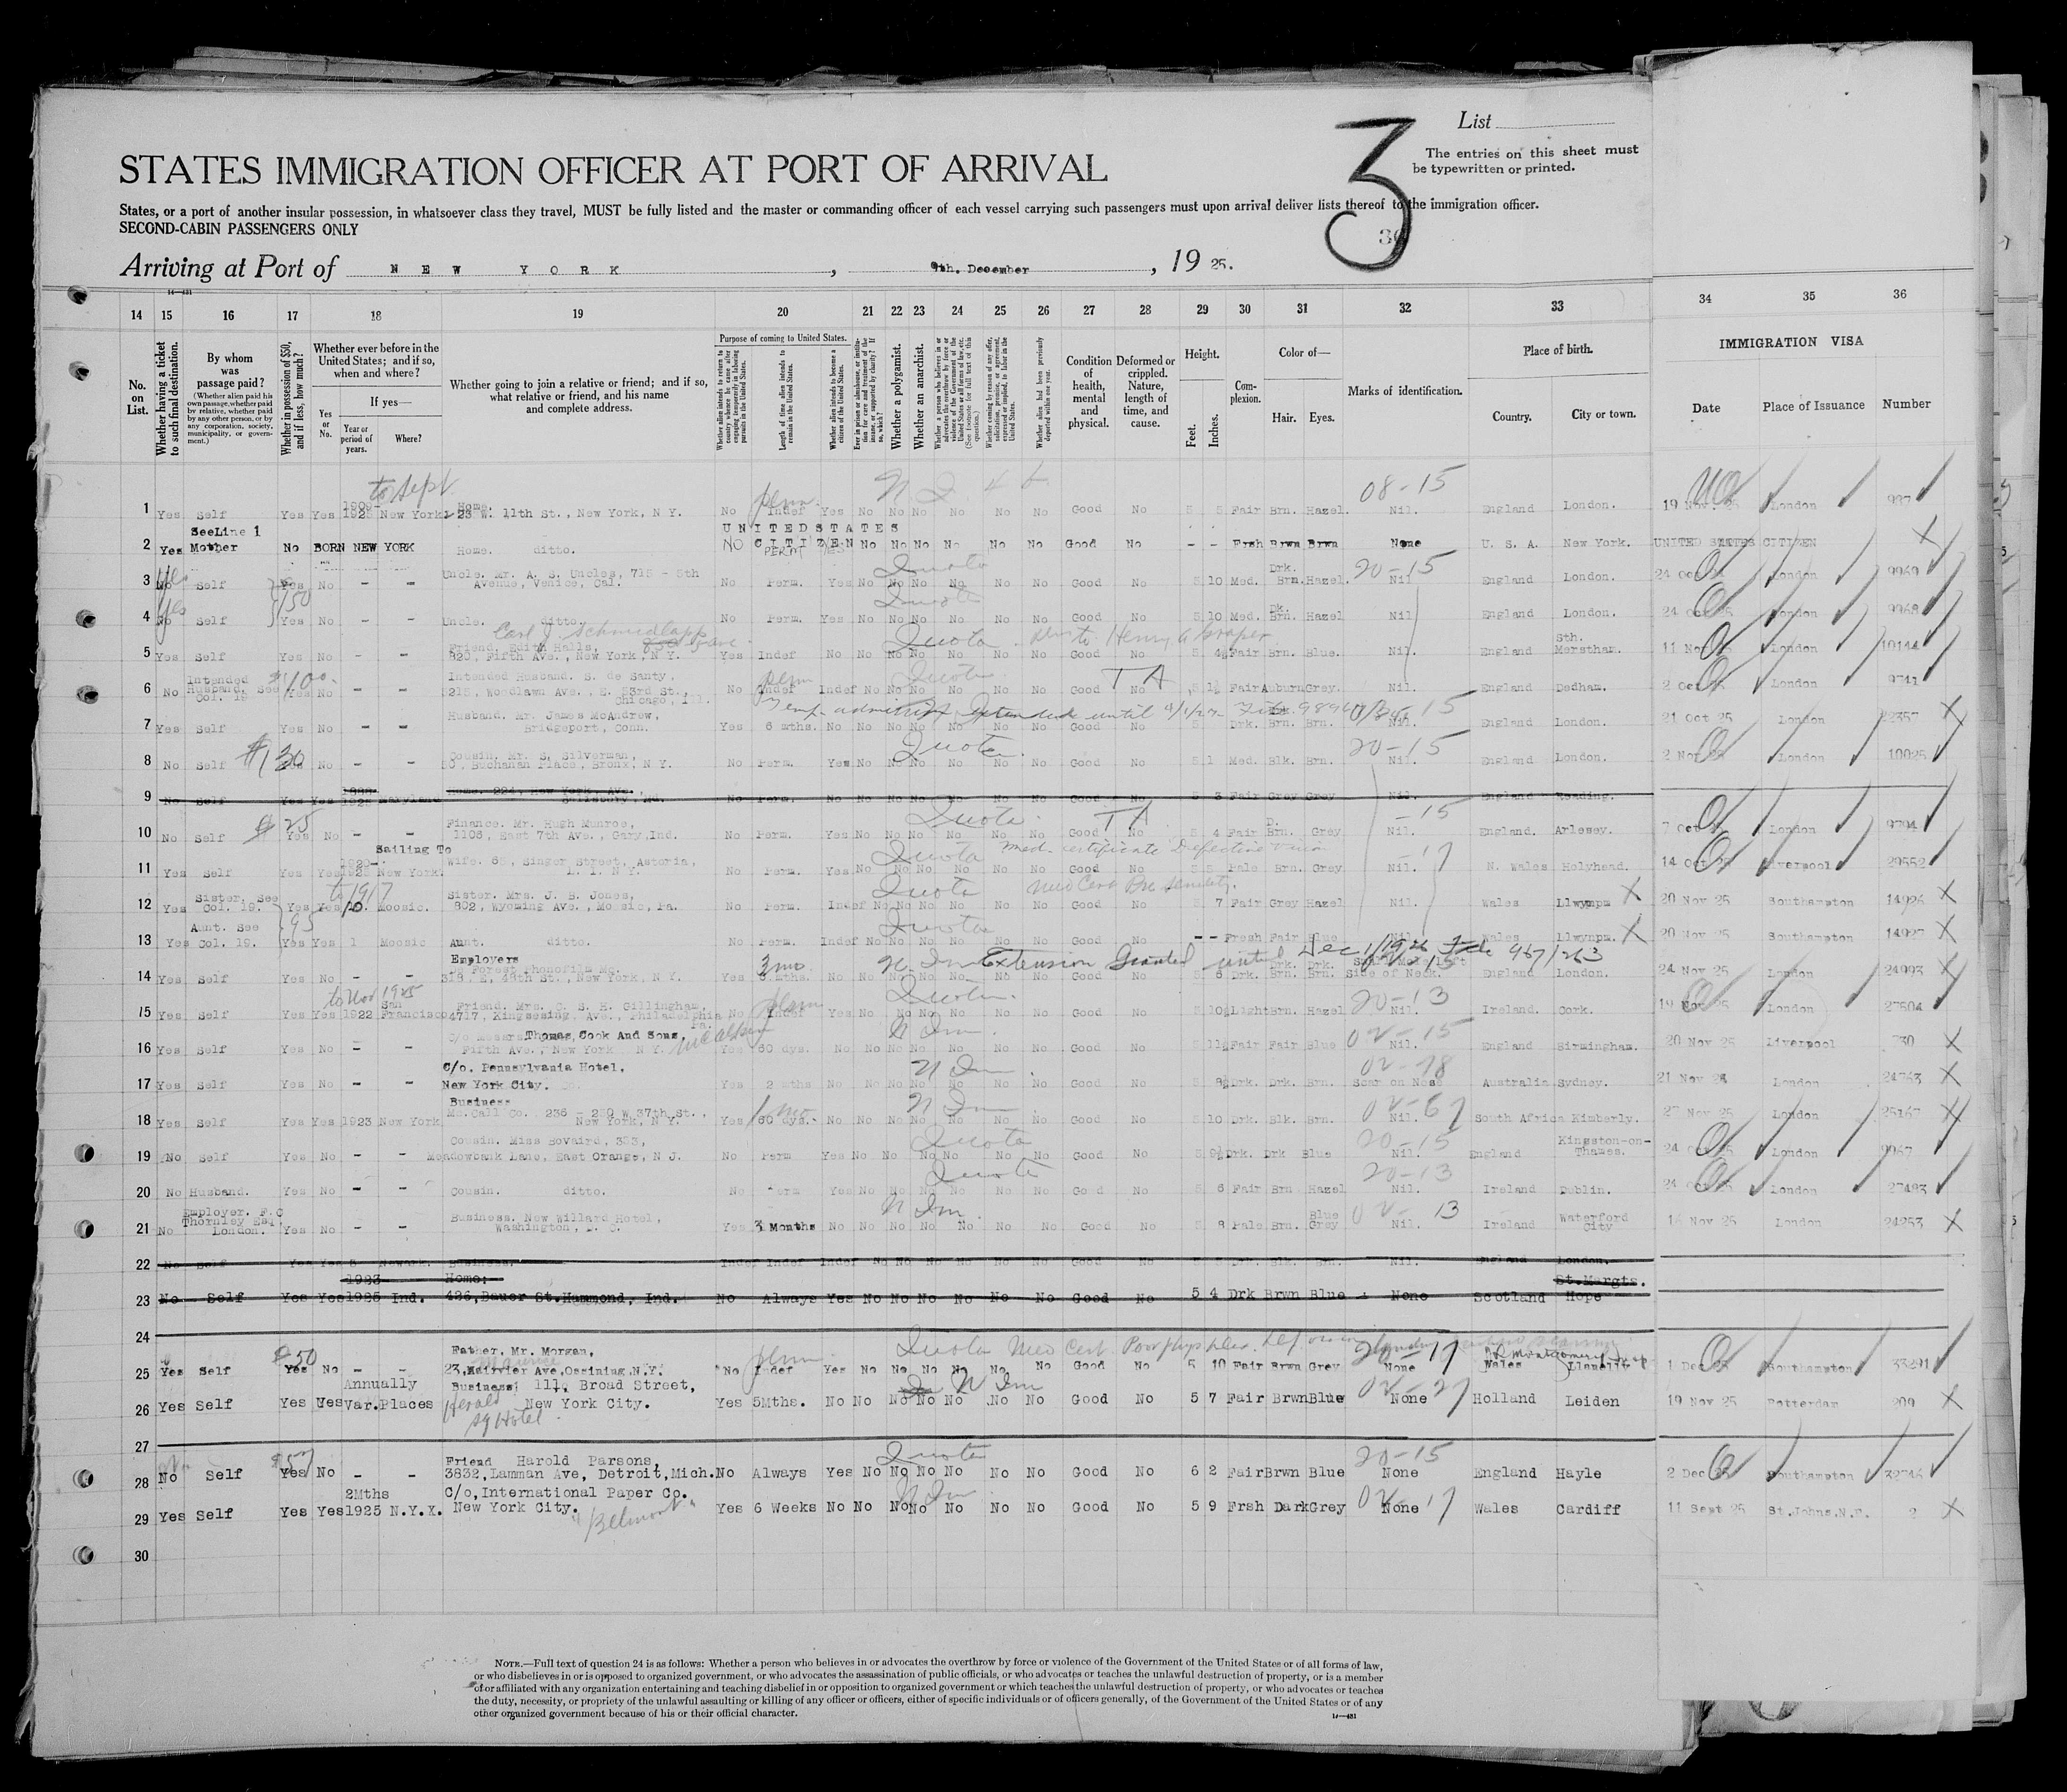 List
3
The entries on this sheet must
be typewritten or printed.
STATES IMMIGRATION OFFICER AT PORT OF ARRIVAL
States, or a port of another insular possession, in whatsoever class they travel, MUST be fully listed and the master or commanding officer of each vessel carrying such passengers must upon arrival deliver lists thereof to the immigration officer.
SECOND-CABIN PASSENGERS ONLY
Arriving at Port of NEW YORK, 9th. December, 19 25.
14 15 16 17 18 19 20 21 22 23 24 25 26 27 28 29 30 31 32 33 34 35 36
No. on List.
Whether having a ticket to such final destination.
By whom was passage paid?
(Whether alien paid his own passage, whether paid by relative, whether paid by any other person, or by any corporation, society, municipality, or government.)
Whether in possession of $50, and if less, how much?
Whether ever before in the United States; and if so, when and where?
If yes—
Yes or No.
Year or period of years.
Where?
Whether going to join a relative or friend; and if so, what relative or friend, and his name and complete address.
Purpose of coming to United States.
Whether alien intends to return to country whence he came after engaging temporarily in laboring pursuits in the United States.
Length of time alien intends to remain in the United States.
Whether alien intends to become a citizen of the United States.
Ever in prison or almshouse, or institution for care and treatment of the insane, or supported by charity? If so, which?
Whether a polygamist.
Whether an anarchist.
Whether coming by reason of any offer, solicitation, promise, or agreement, expressed or implied, to labor in the United States.
Whether alien had been previously deported within one year.
Condition of health, mental and physical.
Deformed or crippled. Nature, length of time, and cause.
Height.
Feet. Inches.
Complexion.
Color of—
Hair. Eyes.
Marks of identification.
Place of birth.
Country. City or town.
IMMIGRATION VISA
Date Place of Issuance Number
to Sept perm 08-15
1 Yes Self Yes Yes 1909- 1925 New York Home. 23 W. 11th St., New York, N Y. No Indef Yes No No No No No No Good No 5 5 Fair Brn. Hazel. Nil. England London. 19 Nov. 25 London 937
UNITED STATES CITIZEN
2 Yes See Line 1 Mother No BORN NEW YORK Home. ditto. No Perm Yes No No No No No No Good No - - Frsh Brwn Brwn None U. S. A. New York. UNITED STATES CITIZEN
Yes Quota 20-15
3 No Self Yes No - - Uncle. Mr. A. S. Uncles, 715 - 5th Avenue, Venice, Cal. No Perm. Yes No No No No No No Good No 5 10 Med. Drk. Brn. Hazel. Nil England London. 24 Oct 25 London 9969
Yes $150 Quota
4 No Self Yes No - - Uncle. ditto. No Perm. Yes No No No No No No Good No 5 10 Med. Dk. Brn. Hazel Nil England London. 24 Oct 25 London 9968
Carl J. Schmidlapp Quota Henry A
5 Yes Self Yes No - - Friend, Edith Halls, 820, Fifth Ave., New York, N Y. Yes Indef No No No No No No No Good No 5 4½ Fair Brn. Blue. Nil. England Sth. Merstham. 11 Nov 25 London 10144
$100. perm Quota T A
6 No Intended Husband. See Col. 19 Yes No - - Intended Husband. S. de Santy, 6215, Woodlawn Ave., E. 53rd St., Chicago, Ill. No Indef Indef No No No No No No Good No 5 1½ Fair Auburn Grey. Nil. England Dedham. 2 Oct 25 London 9741
Temp. admission extended until
7 Yes Self Yes No - - Husband. Mr. James McAndrew, Bridgeport, Conn. Yes 6 mths. No No No No No No No Good No 5 Drk. Brn. Brn. Nil. England London. 21 Oct 25 London 22357
$130 Quota 20-15
8 No Self Yes No - - Cousin, Mr. S. Silverman, Buchanan Place, Bronx, N Y. No Perm. Yes No No No No No No Good No 5 1 Med. Blk. Brn. Nil. England London. 2 Nov 25 London 10025
9 No Self Yes Yes 1925 Maryland Home. 224, New York. Ave., Salisbury, Md. No Perm. No No No No No No Good No 5 3 Fair Grey Grey Nil. England Reading.
$25 Quota T A -15
10 No Self Yes No - - Finance. Mr. Hugh Munroe, 1108, East 7th Ave., Gary, Ind. No Perm. Yes No No No No No No Good No 5 4 Fair D. Brn. Grey Nil. England. Arlesey. 7 Oct 25 London 9794
Sailing To Quota Med. certificate Defective vision -17
11 Yes Self Yes Yes 1920- 1925 New York Wife. 65, Singer Street, Astoria, L. I. N Y. No Perm. Yes No No No No No No Good No 5 5 Pale Brn. Grey Nil. N. Wales Holyhead. 14 Oct 25 Liverpool 29552
to 1917 Quota Med Cert Pre senility.
12 Yes Sister, See Col. 19. Yes Yes 10. Moosic. Sister. Mrs. J. B. Jones, 802, Wyoming Ave., Moosic, Pa. No Perm. Indef No No No No No No Good No 5 7 Fair Grey Hazel Nil. Wales Llwynpa 20 Nov 25 Southampton 14926
95 Quota
13 Yes Aunt. See Col. 19. Yes Yes 1 Moosic Aunt. ditto. No Perm. Indef No No No No No No Good No - - Fresh Fair Blue Nil. Wales Llwynpa. 20 Nov 25 Southampton 14927
3 mo Extension Granted until Dec 1/1926
14 Yes Self Yes No - - Employers De Forest Phonofilm Mo. 318, E. 48th St., New York, N Y. Yes mths. No No No No No No No Good No 5 6 Drk. Drk. Brn. Brn. Side of Neck. England London. 24 Nov 25 London 24993
to Nov 1925 perm Quota. 20-13
15 Yes Self Yes Yes 1922 San Francisco Friend, Mrs. C. S. H. Gillingham, 4717, Kingsessing, Ave., Philadelphia Pa. No Indef Yes No No No No No No Good No 5 10½ Light Brn. Hazel Nil. Ireland. Cork. 19 Nov 25 London 27504
McAlpin N Im 02-15
16 Yes Self Yes No - - C/o Messrs. Thomas Cook And Sons, Fifth Ave., New York N Y. Yes 60 dys. No No No No No No No Good No 5 11½ Fair Fair Blue Nil. England Birmingham. 20 Nov 25 Liverpool 730
N Im 02-78
17 Yes Self Yes No - - C/o. Pennsylvania Hotel, New York City. Yes 2 mths No No No No No No No Good No 5 8½ Drk. Drk. Brn. Scar on Nose Australia Sydney. 21 Nov 25 London 24763
1 mo N Im 02-67
18 Yes Self Yes Yes 1923 New York Business Mc.Call Co. 236 - 250 W 37th St., New York, N Y. Yes 60 dys. No No No No No No No Good No 5 10 Drk. Blk. Brn. Nil. South Africa Kimberly. 27 Nov 25 London 25167
Quota 20-15
19 No Self Yes No - - Cousin. Miss Bovaird, 393, Meadowbank Lane, East Orange, N J. No Perm Yes No No No No No No Good No 5 9½ Drk. Drk Blue Nil. England Kingston-on-Thames. 24 Oct 25 London 9967
Quota 20-13
20 No Husband. Yes No - - Cousin. ditto. No Perm Yes No No No No No No Good No 5 6 Fair Brn Hazel Nil. Ireland Dublin. 24 Oct 25 London 27493
N Im 02-13
21 No Employer. F.C Thornley Esq, London. Yes No - - Business. New Willard Hotel, Washington, D. C. Yes 3 Months No No No No No No No Good No 5 8 Pale Brn. Blue Grey Nil. Ireland Waterford City Nov 25 London 24253
22 No Self Yes Yes 5 Newark. Business. Indef Indef Indef No No No No No No Good No 5 Drk. Blk. Brn. Nil. England London.
23 No Self Yes Yes 1923 1925 Ind. Home: 426, Bauer St. Hammond, Ind. No Always Yes No No No No No No Good No 5 4 Drk Brwn Blue None Scotland St. Margts. Hope
24
$50 perm Quota Med Cert. Poor phys. dev. 20-17
25 Yes Self Yes No - - Father, Mr. Morgan, 23, Ave, Ossining, N.Y. No Indef Yes No No No No No No Good No 5 10 Fair Brwn Grey None Wales Llanelly 1 Dec 25 Southampton 33291
Herald Sq Hotel N Im 02-27
26 Yes Self Yes Yes Annually Var. Places Business; 111, Broad Street, New York City. Yes 5Mths. No No No No No No No Good No 5 7 Fair Brwn Blue None Holland Leiden 19 Nov 25 Rotterdam 209
27
$57 Quota 20-15
28 No Self Yes No - - Friend Harold Parsons, 3832, Lamman Ave, Detroit, Mich. No Always Yes No No No No No No Good No 6 2 Fair Brwn Blue None England Hayle 2 Dec 25 Southampton 32746
Belmont N Im 02-17
29 Yes Self Yes Yes 2Mths 1925 N.Y.X. C/o, International Paper Co. New York City. Yes 6 Weeks No No No No No No No Good No 5 9 Frsh Dark Grey None Wales Cardiff 11 Sept 25 St. Johns. N.F. 2
30
NOTE.—Full text of question 24 is as follows: Whether a person who believes in or advocates the overthrow by force or violence of the Government of the United States or of all forms of law,
or who disbelieves in or is opposed to organized government, or who advocates the assassination of public officials, or who advocates or teaches the unlawful destruction of property, or is a member
of or affiliated with any organization entertaining and teaching disbelief in or opposition to organized government or which teaches the unlawful destruction of property, or who advocates or teaches
the duty, necessity, or propriety of the unlawful assaulting or killing of any officer or officers, either of specific individuals or of officers generally, of the Government of the United States or of any
other organized government because of his or their official character.
14—431